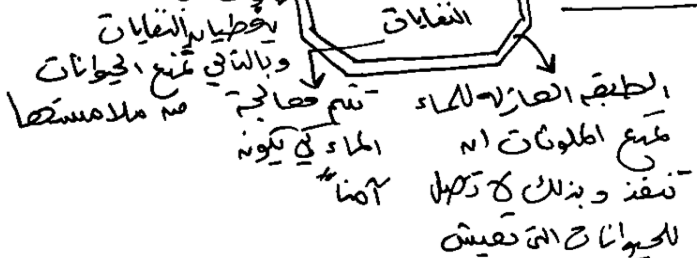 النفايات
يغطيان النفايات
وبالتالي تمنع الحيوانات
من ملامستها
تتم معالجة
الماء كي يكون
آمنا"
الطبقة العازلة للماء
تمنع الملوثات ان
تنفذ وبذلك لا تصل
للحيوانات التي تعيش